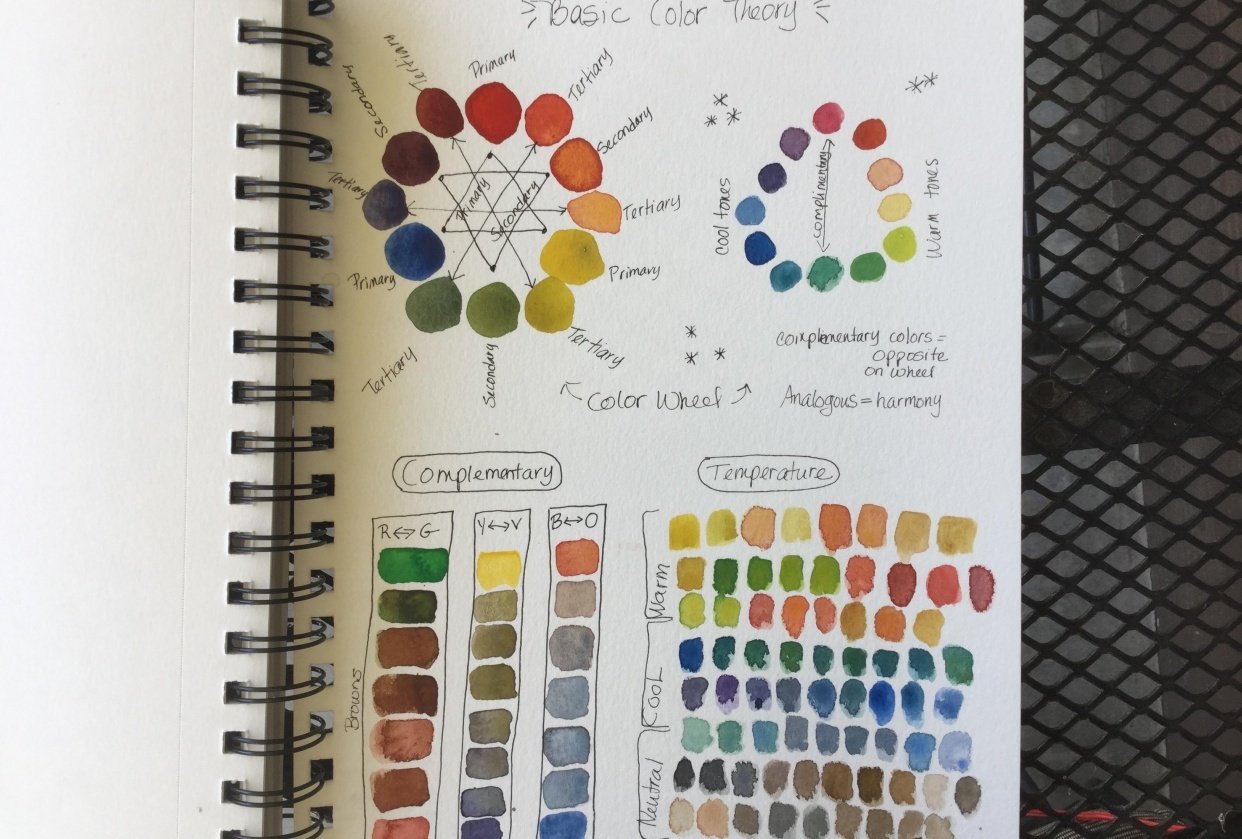 Basic Color Theory
Tertiary
Primary
Tertiary
Secondary
Secondary
Tertiary
Tertiary
Primary
Secondary
Primary
Primary
Tertiary
Secondary
Tertiary
Color Wheel
cool tones
complimentary
warm tones
complementary colors =
opposite
on wheel
Analogous = harmony
Complementary
R↔G
Y↔V
B↔O
Browns
Temperature
Warm
Cool
Neutral